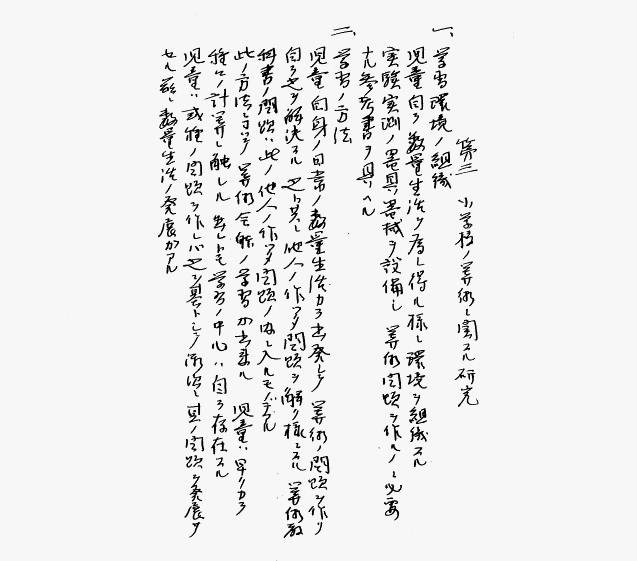 第三 小学校ノ算術ニ関スル研究
一、学習環境ノ組織
児童自ラ数量生活ヲ為シ得ル様ニ環境ヲ組織スル
実験実測ノ器具、器械ヲ設備シ 算術問題ヲ作ルノニ必要
ナル参考書ヲ具ヘル
二、学習ノ方法
児童自身ノ日常ノ数量生活カラ出発シテ算術ノ問題ヲ作リ
自ラ之ヲ解決スル 之ト共ニ他人ノ作ツタ問題ヲ解ク様ニスル 算術教
科書ノ問題ハ此ノ他人ノ作ツタ問題ノ内ニ入ルモノデアル
此ノ方法ニヨツテ算術全般ノ学習ガ出来ル 児童ハ早クカラ
種々ノ計算ニ触レル 然シトモ学習ノ中心ハ自ラ存在スル
児童ハ或種ノ問題ヲ作レバ之ヲ基トシテ漸次ニ其ノ問題ヲ発展サ
セル 茲ニ数量生活ノ発展ガアル